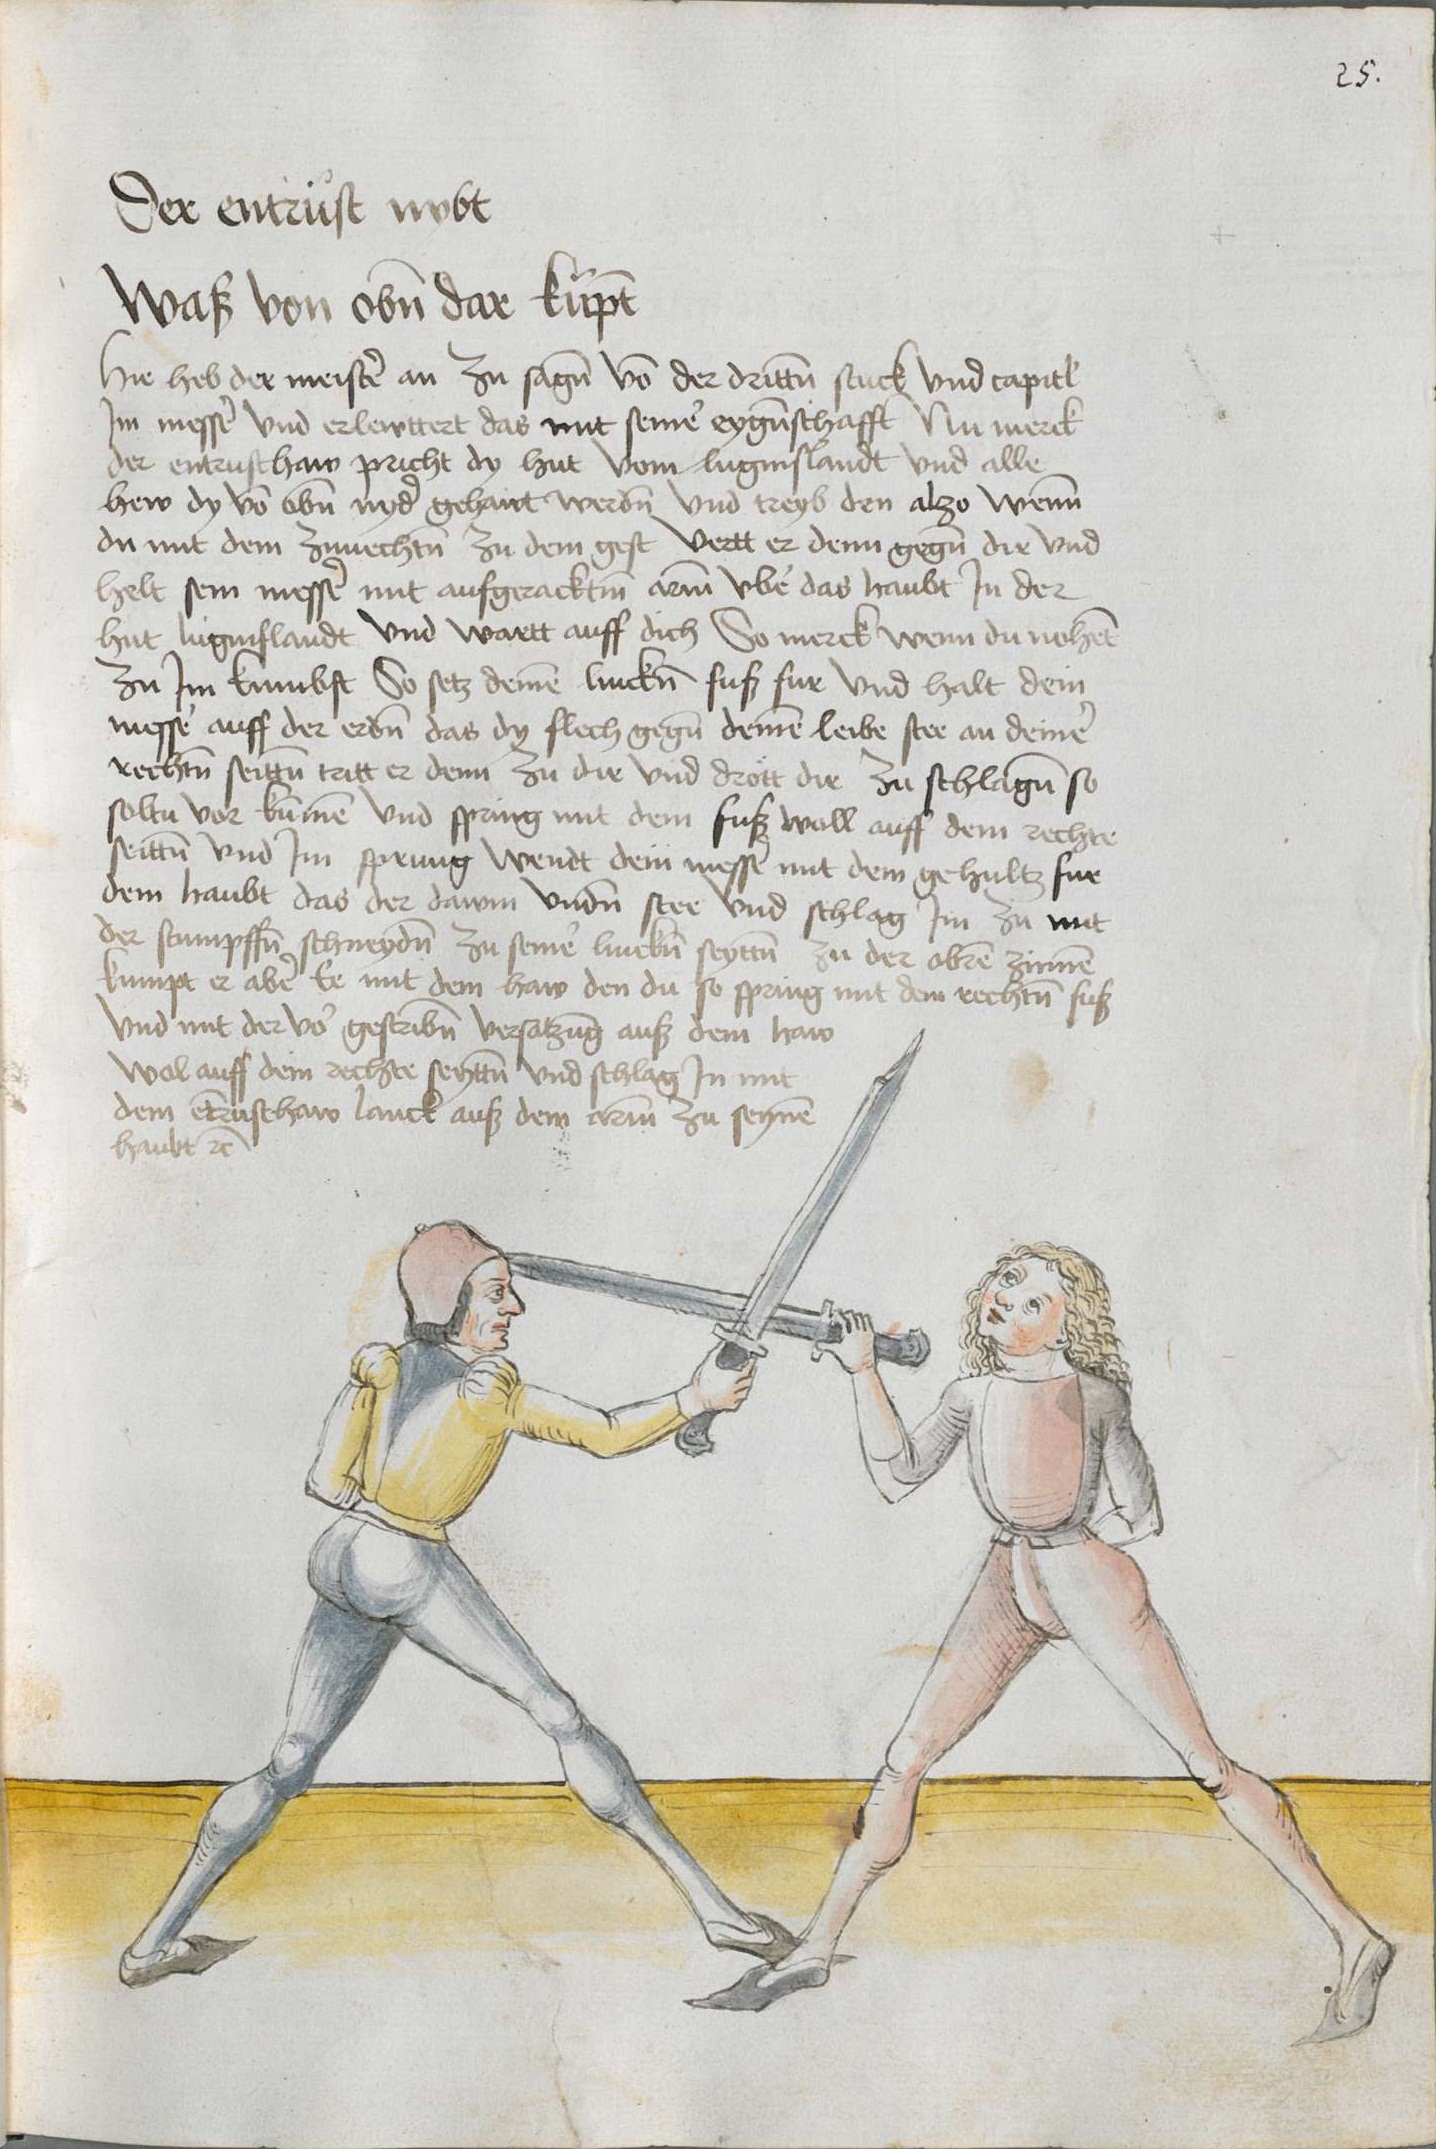 25.
Der entrüst nybt
Waß von obn̄ dar kūpt
Hie heb der meistˀ an zu sagn̄ vō der drittn̄ stuck vnd capitl
Im messˀ vnd erlewttert das mit seinē eygn̄schafft Nu merck
der entrusthaw pricht dy hut vom luginslandt vnd alle
hew dy vō obn̄ nydˀ gehawt werdn̄ vnd treyb den alzo wenn
du mit dem zuuechtn̄ zu dem gest vertt er denn gegn̄ dir vnd
helt sein messˀ mit aufgeracktm̄ arm̄ vbˀ das haubt In der
hut luginslandt vnd wartt auff dich So merck wenn du nohēt
zu Im kumbst So setz deinē linckn̄ fuß fur vnd halt dein
messˀ auff der erdn̄ das dy flech gegn̄ deinē leibe stee an deinˀ
rechtn̄ seittn̄ tritt er denn zu dir vnd drött dir zu schlagn̄ so
soltu vor kūmē vnd spring mit dem fuß woll auff dem rechte
seittn̄ vnd Im sprung wendt dein messˀ mit dem gehultz fur
dem haubt das der dawm vndn̄ stee vnd schlag Im zu mit
der stumpffn̄ schneydn̄ zu seinˀ linckn̄ seyttn̄ zu der obrē zinnē
kumpt er abˀ Ee mit dem haw den du so spring mit dem rechtn̄ fuß
vnd mit der vorˀ gestribn̄ versatzung auß dem haw
wol auff dein rechte seyttn̄ vnd schlag In mit
dem ētrusthaw lanck auß dem arm̄ zu seynē
haubt rc̄